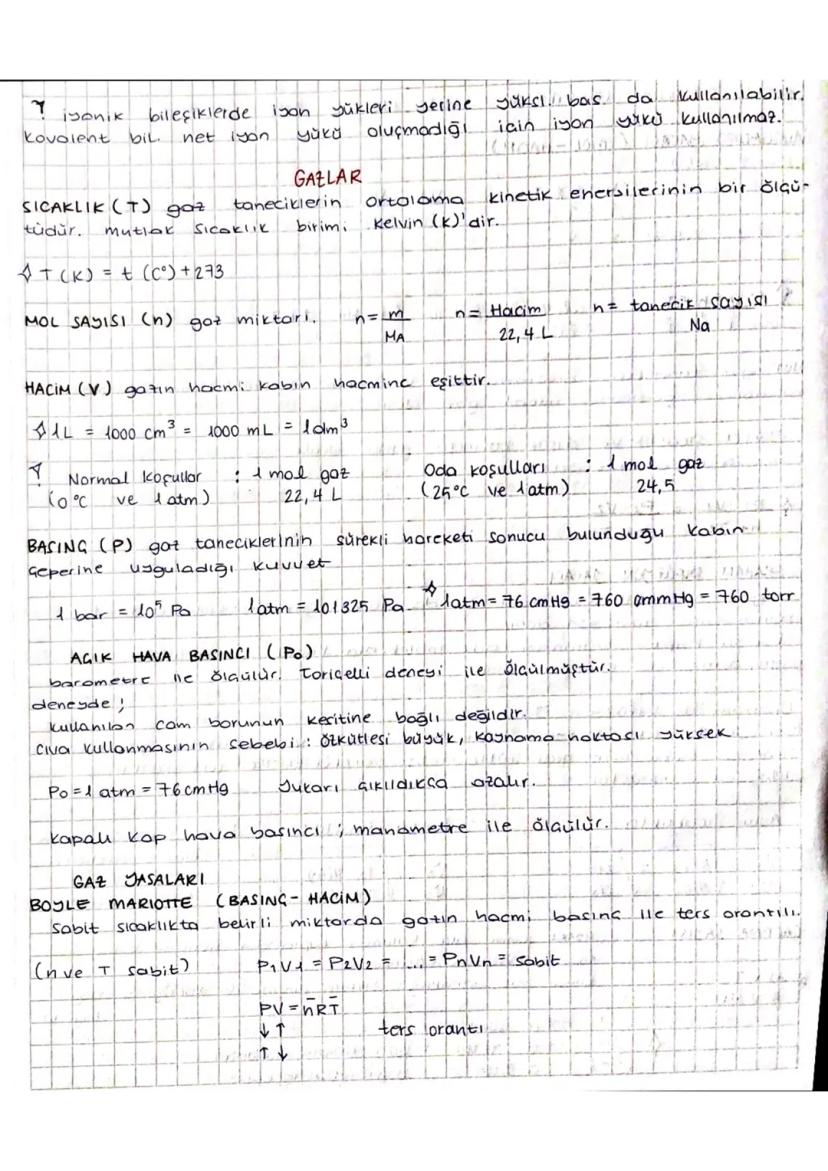 ? iyonik bileşiklerde iyon yükleri yerine yüksl. bas. da kullanılabilir.
kovalent bil. net iyon yükü oluşmadığı için iyon yükü kullanılmaz.
GAZLAR
SICAKLIK (T) gaz taneciklerin ortalama kinetik enersilerinin bir ölçü-
tüdür. mutlak sıcaklık birimi kelvin (K)'dir.
T (K) = t (C°) + 273
MOL SAYISI (n) gaz miktarı. n = m n = Hacim n = tanecik sayısı
MA 22,4 L Na
HACİM (V) gazın hacmi kabın hacmine eşittir.
1L = 1000 cm³ = 1000 mL = 1dm³
? Normal Koşullar : 1 mol gaz Oda koşulları : 1 mol gaz
(0°C ve 1 atm) 22,4 L (25°C ve 1atm) 24,5
BASINÇ (P) gaz taneciklerinin sürekli hareketi sonucu bulunduğu kabın
çeperine uyguladığı kuvvet
1 bar = 10⁵ Pa 1atm = 101325 Pa 1atm = 76 cmHg = 760 mmHg = 760 torr
AÇIK HAVA BASINCI (P₀)
barometre ile ölçülür. Toriçelli deneyi ile ölçülmüştür.
deneyde ;
kullanılan cam borunun kesitine bağlı değildir.
civa kullanmasının sebebi : özkütlesi büyük, kaynama noktası yüksek
P₀ = 1 atm = 76 cmHg Yukarı çıkıldıkça azalır.
kapalı kap hava basıncı ; manometre ile ölçülür.
GAZ YASALARI
BOYLE MARIOTTE (BASINÇ - HACİM)
Sabit sıcaklıkta belirli miktarda gazın hacmi basınç ile ters orantılı.
(n ve T sabit) P₁V₁ = P₂V₂ = ... = PnVn = Sabit
PV = n̄RT̄
↓ ↑ ters orantı
↑ ↓